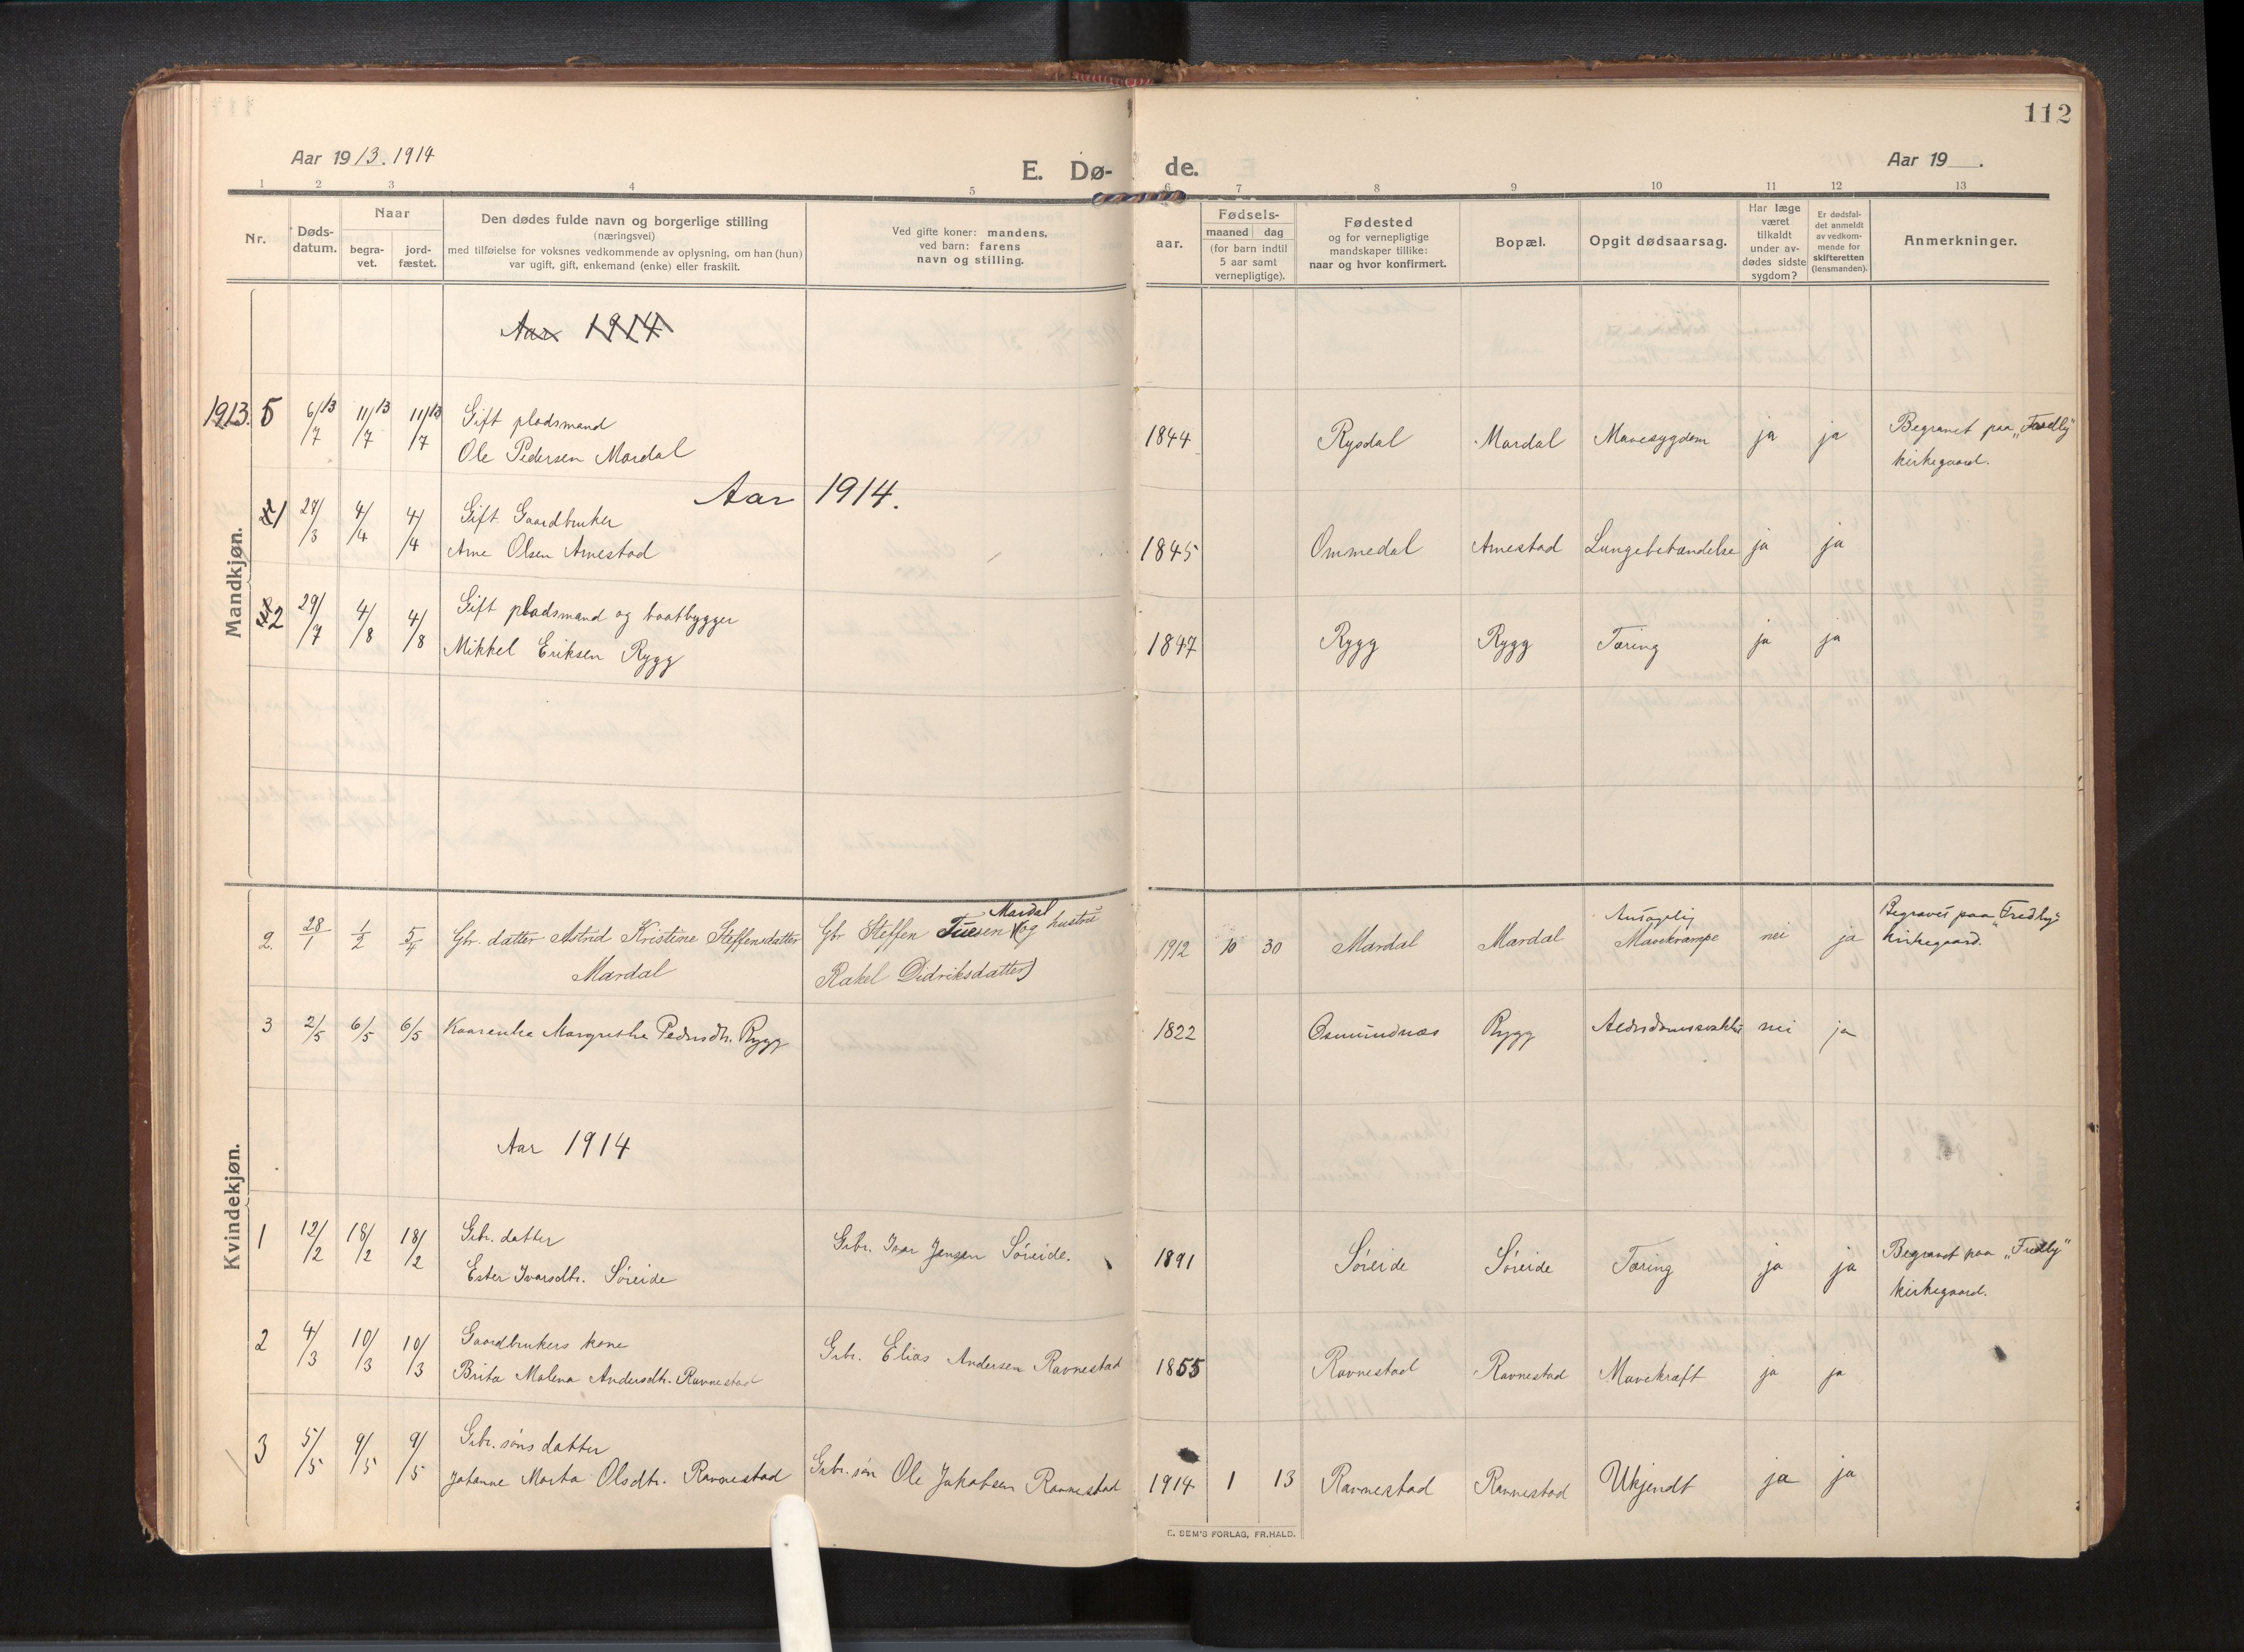 112
Aar 1913. 1914
E. Dø-
de.
Aar 19 .
1 2 3 4 5 6 7 8 9 10 11 12 13
Nr.
Døds-
datum.
Naar
begra-
vet.
jord-
fæstet.
Den dødes fulde navn og borgerlige stilling
(næringsvei)
med tilføielse for voksnes vedkommende av oplysning, om han (hun)
var ugift, gift, enkemand (enke) eller fraskilt.
Ved gifte koner: mandens,
ved barn: farens
navn og stilling.
aar.
Fødsels-
maaned dag
(for barn indtil
5 aar samt
vernepligtige).
Fødested
og for vernepligtige
mandskaper tillike:
naar og hvor konfirmert.
Bopæl.
Opgit dødsaarsag.
Har læge
været
tilkaldt
under av-
dødes sidste
sygdom?
Er dødsfal-
det anmeldt
av vedkom-
mende for
skifteretten
(lensmanden).
Anmerkninger.
Mandkjøn.
Aar 1914
1913. 5 6/7 13 11/7 13 11/7 13 Gift pladsmand
Ole Pedersen Mardal
1844 Rysdal Mardal Mavesygdom ja ja Begravet paa „Fredly"
kirkegaard.
Aar 1914.
1 27/3 4/4 4/4 Gift Gaardbruker
Arne Olsen Arnestad
1845 Ommedal Arnestad Lungebetændelse ja ja
2 29/7 4/8 4/8 Gift pladsmand og baatbygger
Mikkel Eriksen Rygg
1847 Rygg Rygg Tæring ja ja
Kvindekjøn.
2. 28/1 1/2 5/4 Gbr. datter Astrid Kristine Steffensdatter
Mardal
Mardal
Gbr Steffen og hustru
Rakel Didriksdatter)
1912 10 30 Mardal Mardal Antagelig
Mavekrampe nei ja Begravet paa „Fredly"
kirkegaard.
3 2/5 6/5 6/5 Kaarenke Margrethe Pedersdtr. Rygg
1822 Osmundnæs Rygg Alderdomssvakhet nei ja
Aar 1914
1 12/2 18/2 18/2 Grbr. datter
Ester Ivarsdtr. Søreide
Grbr. Ivar Jensen Søreide.
1891 Søreide Søreide Tæring ja ja Begravet paa „Fredly"
kirkegaard.
2 4/3 10/3 10/3 Gaardbrukers kone
Brita Malena Andersdtr. Ravnestad
Grbr. Elias Andersen Ravnestad
1855 Ravnestad Ravnestad Mavekræft ja ja
3 5/5 9/5 9/5 Grbr. søns datter
Johanne Marta Olsdtr. Ravnestad
Grbr. søn Ole Jakobsen Ravnestad
1914 1 13 Ravnestad Ravnestad Ukjendt ja ja
E. SEM'S FORLAG, FR.HALD.